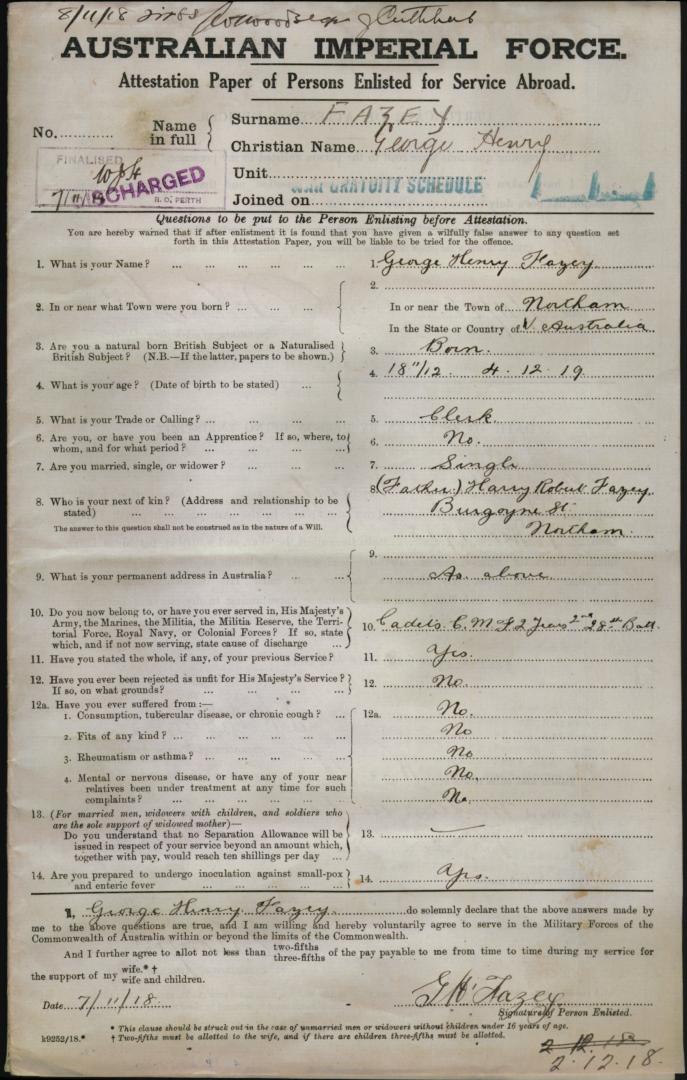 8/11/18
AUSTRALIAN IMPERIAL FORCE.
Attestation Paper of Persons Enlisted for Service Abroad.
No. Name in full { Surname FAZEY
Christian Name George Henry
Unit
Joined on
FINALISED
7/11/18
DISCHARGED
R.O. PERTH
WAR GRATUITY SCHEDULE
Questions to be put to the Person Enlisting before Attestation.
You are hereby warned that if after enlistment it is found that you have given a wilfully false answer to any question set
forth in this Attestation Paper, you will be liable to be tried for the offence.
1. What is your Name? ... 1. George Henry Fazey
2. In or near what Town were you born? ... 2. In or near the Town of Northam
In the State or Country of W Australia
3. Are you a natural born British Subject or a Naturalised
British Subject? (N.B.—If the latter, papers to be shown.) 3. Born.
4. What is your age? (Date of birth to be stated) ... 4. 18 11/12 4.12.19
5. What is your Trade or Calling? ... 5. Clerk
6. Are you, or have you been an Apprentice? If so, where, to
whom, and for what period? ... 6. No.
7. Are you married, single, or widower? ... 7. Single
8. Who is your next of kin? (Address and relationship to be
stated) ... 8. (Father) Harry Robert Fazey
Burgoyne St.
Northam.
The answer to this question shall not be construed as in the nature of a Will.
9. What is your permanent address in Australia? ... 9. As above
10. Do you now belong to, or have you ever served in, His Majesty's
Army, the Marines, the Militia, the Militia Reserve, the Terri-
torial Force, Royal Navy, or Colonial Forces? If so, state
which, and if not now serving, state cause of discharge ... 10. Cadets. C.M.F 2 Years 2nd 28th Batt.
11. Have you stated the whole, if any, of your previous Service? 11. Yes.
12. Have you ever been rejected as unfit for His Majesty's Service?
If so, on what grounds? ... 12. No.
12a. Have you ever suffered from :— 12a.
1. Consumption, tubercular disease, or chronic cough? ... No.
2. Fits of any kind? ... No
3. Rheumatism or asthma? ... No
4. Mental or nervous disease, or have any of your near
relatives been under treatment at any time for such
complaints? ... No.
No.
13. (For married men, widowers with children, and soldiers who
are the sole support of widowed mother)—
Do you understand that no Separation Allowance will be
issued in respect of your service beyond an amount which,
together with pay, would reach ten shillings per day ... 13. —
14. Are you prepared to undergo inoculation against small-pox
and enteric fever ... 14. Yes.
I, George Henry Fazey do solemnly declare that the above answers made by
me to the above questions are true, and I am willing and hereby voluntarily agree to serve in the Military Forces of the
Commonwealth of Australia within or beyond the limits of the Commonwealth.
And I further agree to allot not less than two-fifths three-fifths of the pay payable to me from time to time during my service for
the support of my wife.* † wife and children.
Date 7/11/18. G H Fazey
Signature of Person Enlisted.
* This clause should be struck out in the case of unmarried men or widowers without children under 16 years of age.
k9252/18.* † Two-fifths must be allotted to the wife, and if there are children three-fifths must be allotted.
2.12.18
2.12.18.